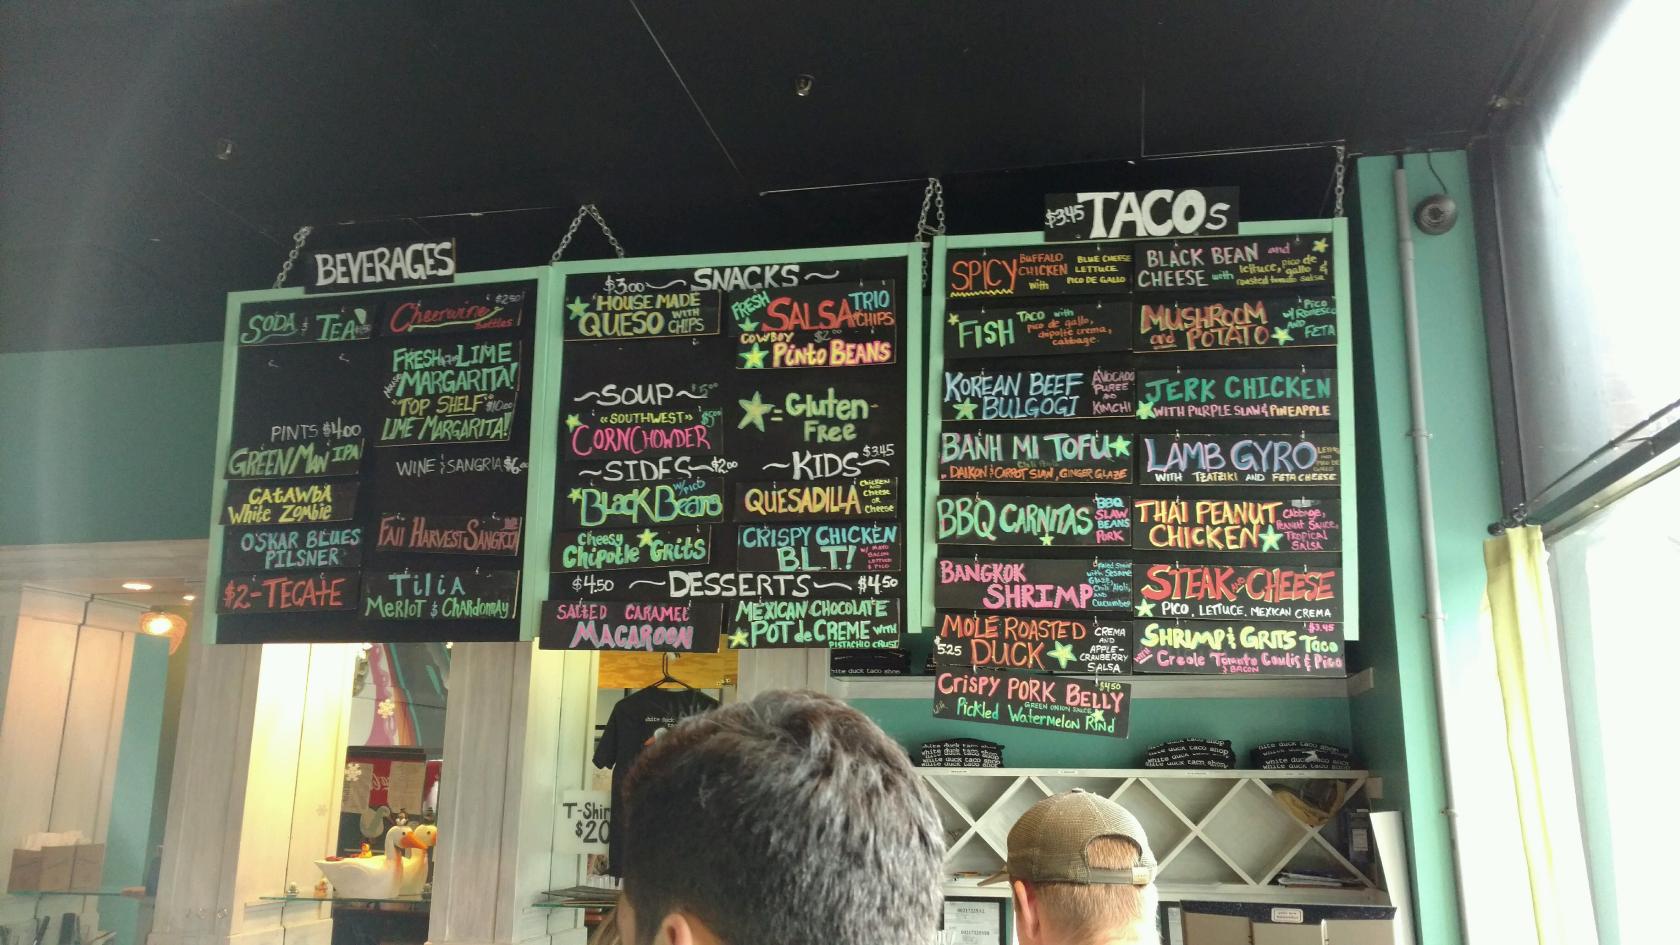 BEVERAGES
SODA & TEA
Cheerwine $2.50
Bottles
FRESH LIME
House MARGARITA!
"TOP SHELF" $10.00
LIME MARGARITA!
PINTS $4.00
GREEN MAN IPA
CATAWBA
White Zombie
OSKAR BLUES
PILSNER
$2-TECATE
WINE & SANGRIA $6.00
Fall HARVEST SANGRIA
TiLiA
MERLOT & CHARDONNAY
$3.00 ~ SNACKS ~
HOUSE MADE
QUESO WITH
CHIPS
FRESH SALSA TRIO
CHIPS
COWBOY $2.00
PiNTO BEANS
~SOUP~ $5.00
"SOUTHWEST" $5.00
CORN CHOWDER
= Gluten-
Free
~SIDES~ $2.00
BlacK Beans w/ Pico
Cheesy
Chipotle Grits
$3.45
~KIDS~
QUESADILLA Chicken
AND
Cheese
OR
Cheese
CRISPY CHICKEN
B.L.T! W/ MAYO
BACON
LETTUCE
& PICO
$4.50 ~DESSERTS~ $4.50
SALTED CARAMEL
MACAROON
MEXICAN CHOCOLATE
POT de CREME WITH
PISTACHIO CRUST
$3.45 TACOS
SPICY BUFFALO
CHICKEN
with
BLUE CHEESE
LETTUCE
PICO DE GALLO
FISH TACO with
pico de gallo,
chipotle crema,
cabbage.
KOREAN BEEF
BULGOGI
AVOCADO
PUREE
AND
KIMCHI
BANH MI TOFU
DAIKON & CARROT SLAW, GINGER GLAZE
BBQ CARNITAS BBQ
SLAW
BEANS
PORK
BANGKOK
SHRIMP
Fried Shrimp
with Sesame
Glaze,
Chili Aioli,
AND
Cucumber
MOLE ROASTED
5.25 DUCK
CREMA
AND
APPLE-
CRANBERRY
SALSA
CRiSPY PORK BELLY $4.50
GREEN ONION SAUCE
Pickled Watermelon Rind
BLACK BEAN and
CHEESE with lettuce, pico de
gallo &
roasted tomato salsa
MUSHROOM
and POTATO
w/ Romesco
Pico
AND
FETA
JERK CHICKEN
WITH PURPLE SLAW & PINEAPPLE
LAMB GYRO
WITH TZATZIKI AND FETA CHEESE
THAI PEANUT
CHICKEN
Cabbage,
Peanut Sauce,
TROPICAL
SALSA
STEAK AND CHEESE
PICO, LETTUCE, MEXICAN CREMA
SHRIMP & GRITS Taco $3.45
with Creole Tomato Coulis & Pico
& BACON
T-Shir
$20
white duck taco shop
white duck taco shop
white duck taco shop
white duck taco shop